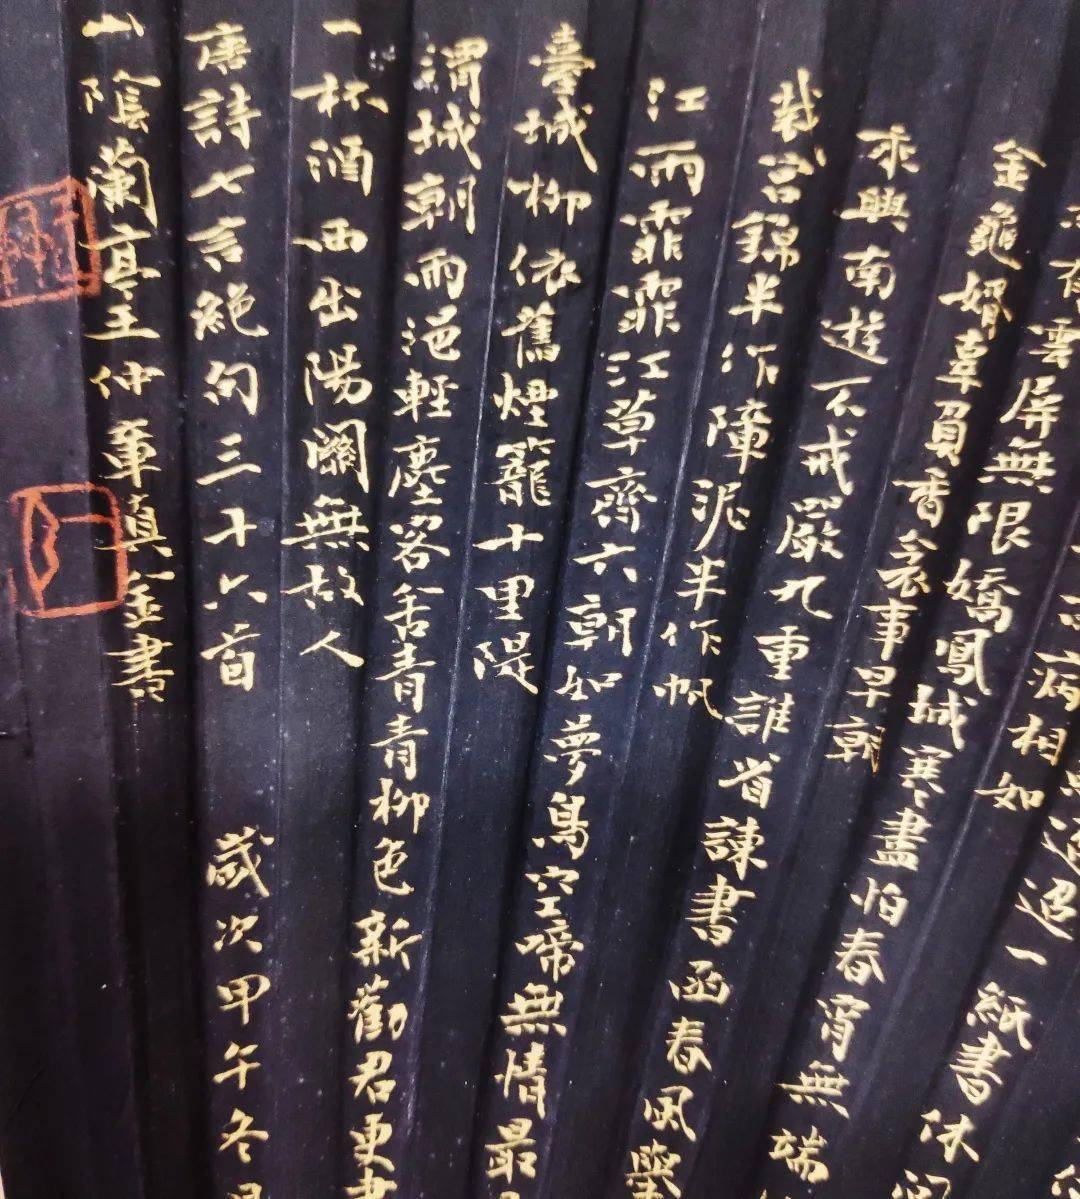 迢一紙書休
病相如
有雲屏無限嬌鳳城寒盡怕春宵無端
金龜婿辜負香衾事早朝
乘興南遊不戒嚴九重誰省諫書函春風舉
裁宮錦半作障泥半作帆
江雨霏霏江草齊六朝如夢鳥空啼無情最
臺城柳依舊煙籠十里隄
渭城朝雨浥輕塵客舍青青柳色新勸君更
一杯酒西出陽關無故人
唐詩七言絕句三十六首 歲次甲午冬
山陰蘭亭王仲軍真金書